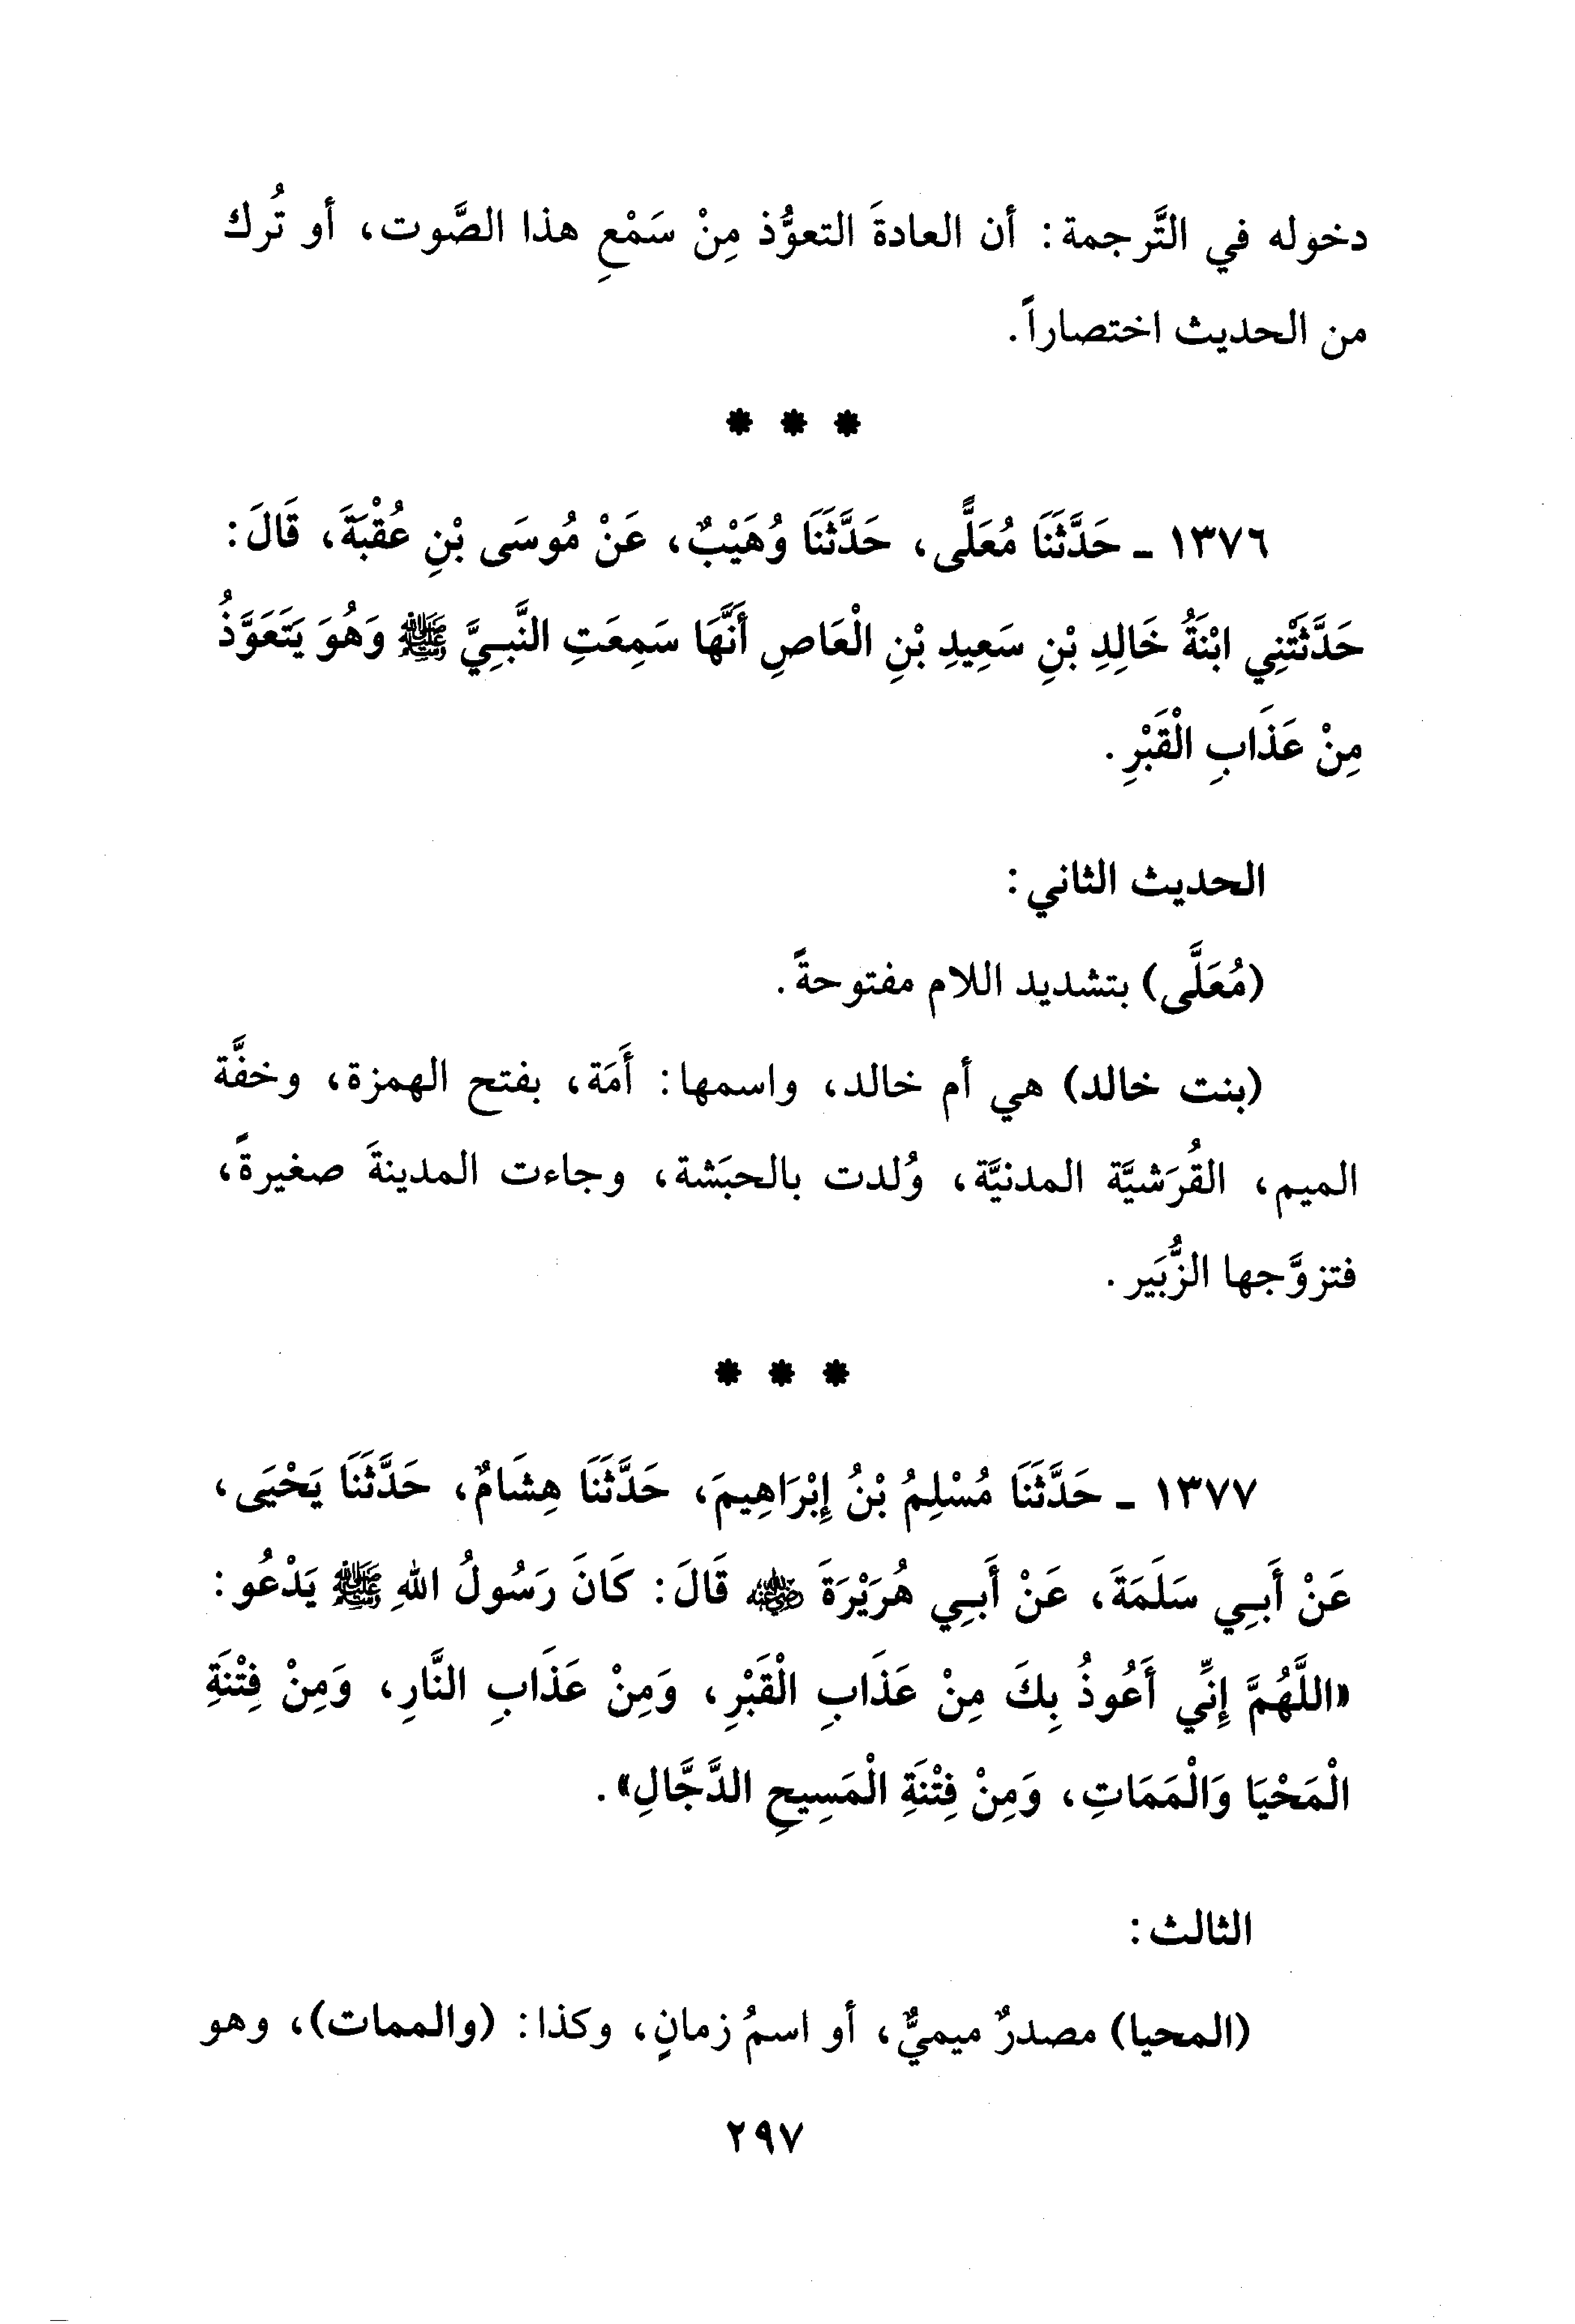 دخوله في التَّرجمة: أن العادةَ التعوُّذ مِنْ سَمْعِ هذا الصَّوت، أو تُرك
من الحديث اختصاراً.
* * *
١٣٧٦ ـ حَدَّثَنَا مُعَلًّى، حَدَّثَنَا وُهَيْبٌ، عَنْ مُوسَى بْنِ عُقْبَةَ، قَالَ:
حَدَّثَتْنِي ابْنَةُ خَالِدِ بْنِ سَعِيدِ بْنِ الْعَاصِ أَنَّهَا سَمِعَتِ النَّبِيَّ ﷺ وَهُوَ يَتَعَوَّذُ
مِنْ عَذَابِ الْقَبْرِ.
الحديث الثاني:
(مُعَلَّى) بتشديد اللام مفتوحةً.
(بنت خالد) هي أم خالد، واسمها: أَمَة، بفتح الهمزة، وخفَّة
الميم، القُرَشيَّة المدنيَّة، وُلدت بالحبَشة، وجاءت المدينةَ صغيرةً،
فتزوَّجها الزُّبَير.
* * *
١٣٧٧ ـ حَدَّثَنَا مُسْلِمُ بْنُ إِبْرَاهِيمَ، حَدَّثَنَا هِشَامٌ، حَدَّثَنَا يَحْيَى،
عَنْ أَبِي سَلَمَةَ، عَنْ أَبِي هُرَيْرَةَ رضي الله عنه قَالَ: كَانَ رَسُولُ اللهِ ﷺ يَدْعُو:
«اللَّهُمَّ إِنِّي أَعُوذُ بِكَ مِنْ عَذَابِ الْقَبْرِ، وَمِنْ عَذَابِ النَّارِ، وَمِنْ فِتْنَةِ
الْمَحْيَا وَالْمَمَاتِ، وَمِنْ فِتْنَةِ الْمَسِيحِ الدَّجَّالِ».
الثالث:
(المحيا) مصدرٌ ميميٌّ، أو اسمُ زمانٍ، وكذا: (والممات)، وهو
٢٩٧